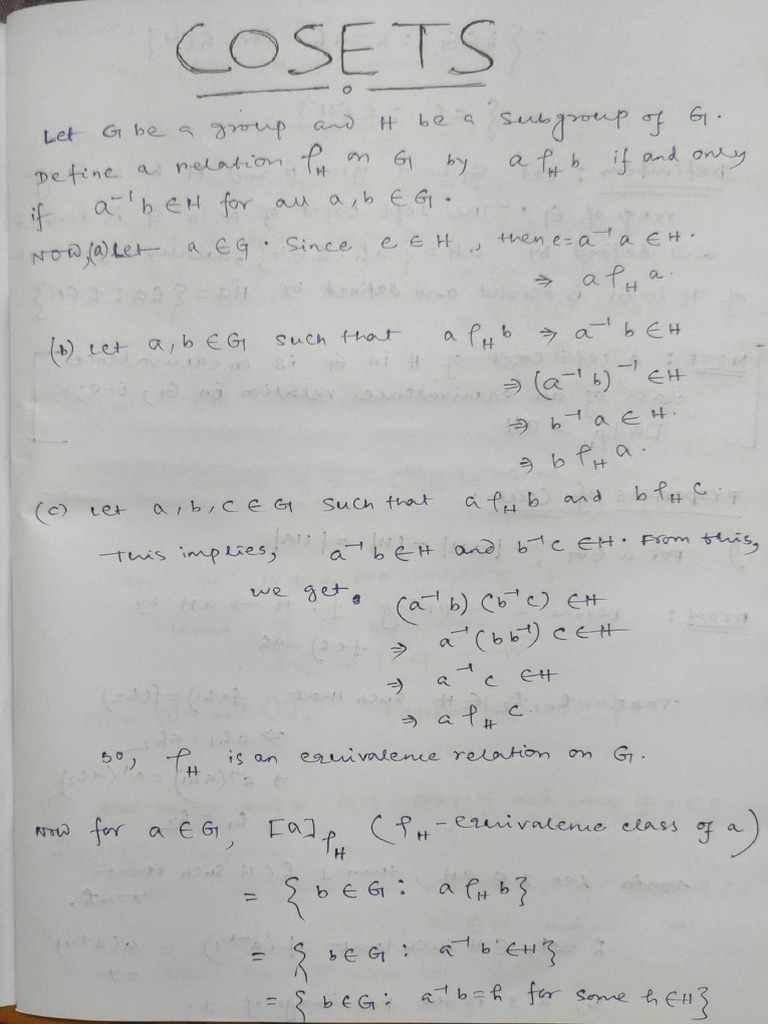 COSETS
Let G be a group and H be a subgroup of G.
Define a relation ρ_H on G by a ρ_H b if and only
if a⁻¹b ∈ H for all a, b ∈ G.
NOW, (a) Let a ∈ G. Since e ∈ H, then e = a⁻¹a ∈ H.
⇒ a ρ_H a.
(b) Let a, b ∈ G such that a ρ_H b ⇒ a⁻¹ b ∈ H
⇒ (a⁻¹ b)⁻¹ ∈ H
⇒ b⁻¹ a ∈ H.
⇒ b ρ_H a.
(c) Let a, b, c ∈ G such that a ρ_H b and b ρ_H c.
This implies, a⁻¹ b ∈ H and b⁻¹ c ∈ H. From this,
we get. (a⁻¹ b) (b⁻¹ c) ∈ H
⇒ a⁻¹ (b b⁻¹) c ∈ H
⇒ a⁻¹ c ∈ H
⇒ a ρ_H c.
So, ρ_H is an equivalence relation on G.
Now for a ∈ G, [a]_ρ_H (ρ_H - equivalence class of a)
= { b ∈ G : a ρ_H b}
= { b ∈ G : a⁻¹ b ∈ H}
= { b ∈ G : a⁻¹ b = h for some h ∈ H}